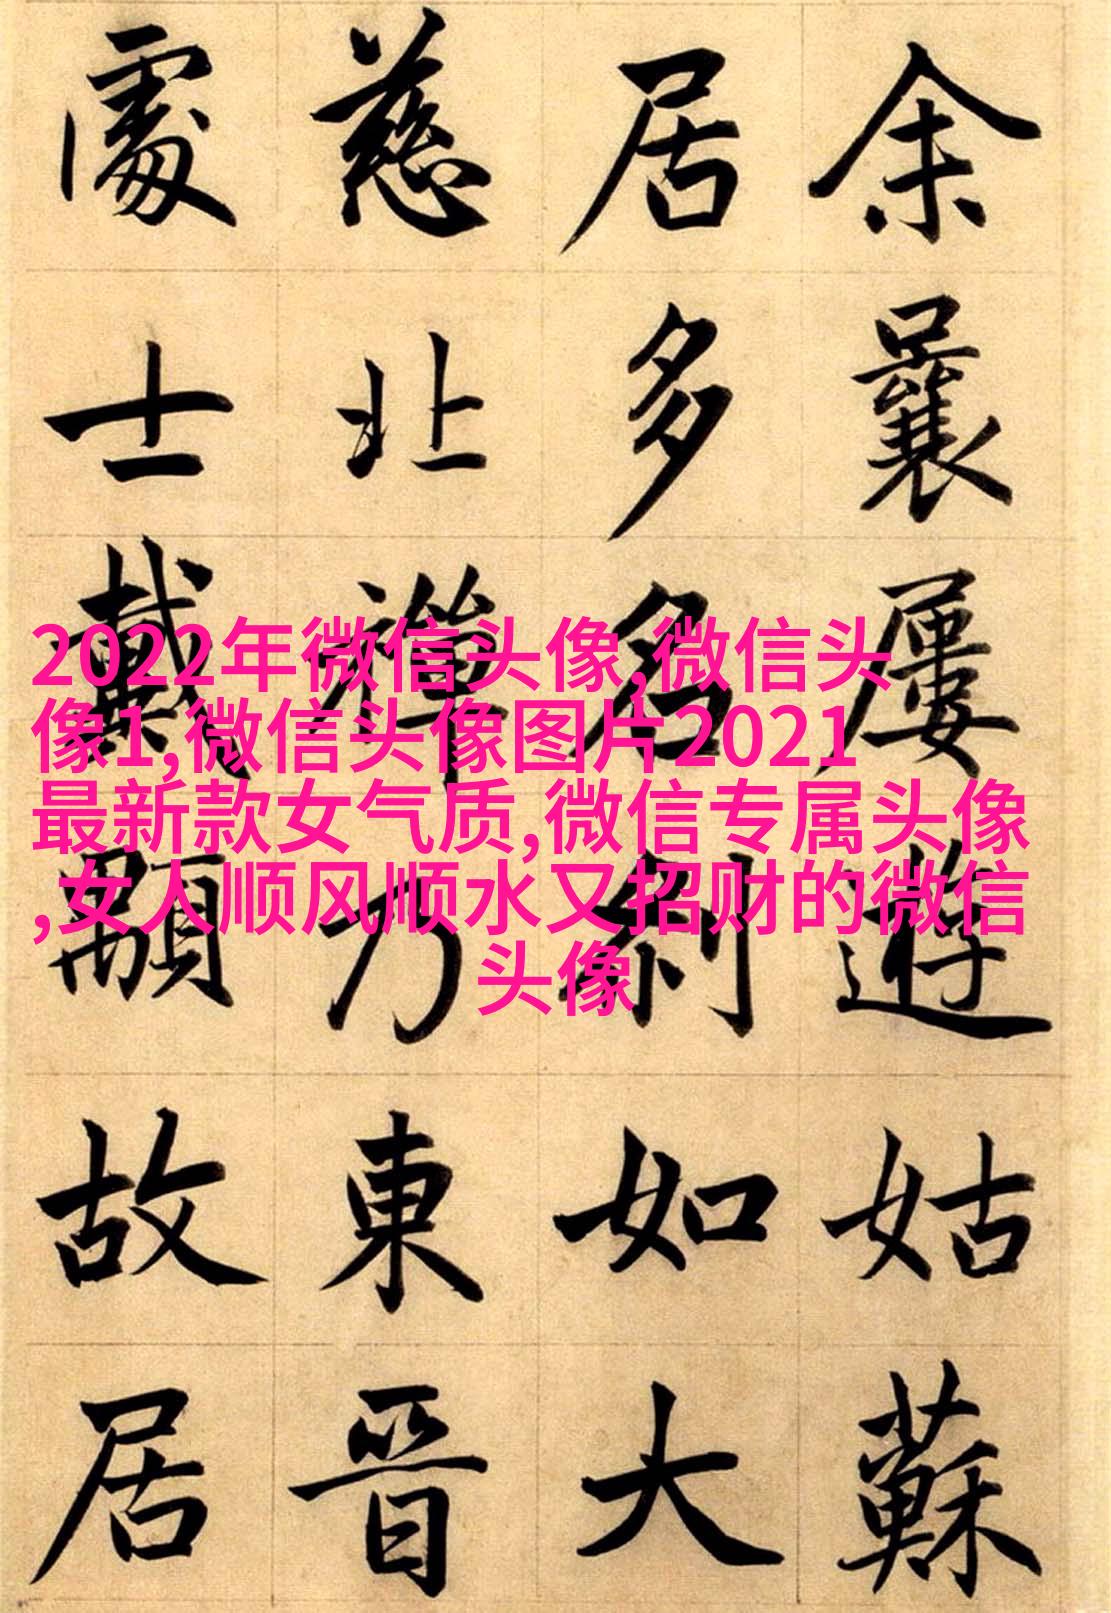 余曩屢遊姑蘇
居多名剎如大
慈北禪乃東晉
處士戴顒故居
2022年微信头像,微信头
像1,微信头像图片2021
最新款女气质,微信专属头像
,女人顺风顺水又招财的微信
头像